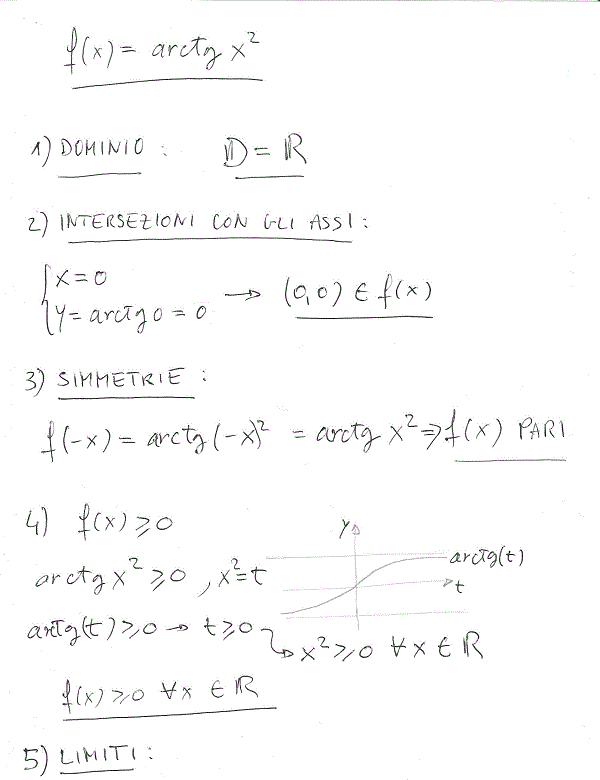 f(x) = arctg x²
1) DOMINIO : D = ℝ
2) INTERSEZIONI CON GLI ASSI :
{x = 0
{y = arctg 0 = 0 → (0,0) ∈ f(x)
3) SIMMETRIE :
f(-x) = arctg (-x)² = arctg x² ⇒ f(x) PARI
4) f(x) ≥ 0
y
arctg x² ≥ 0 , x² = t
arctg(t)
t
arctg(t) ≥ 0 → t ≥ 0
↳ x² ≥ 0 ∀x ∈ ℝ
f(x) ≥ 0 ∀x ∈ ℝ
5) LIMITI :